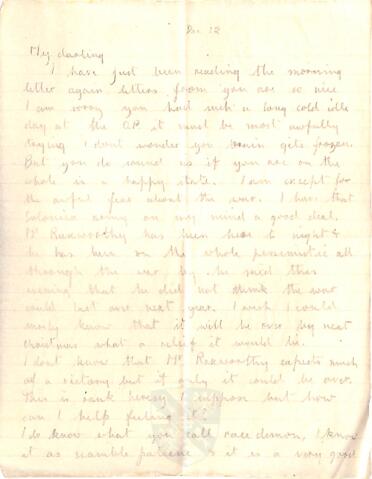 Dec 12
My darling
I have just been reading the morning
letter again letters from you are so nice
I am sorry you had such a long cold idle
day at the O.P. it must be most awfully
trying I dont wonder you brain gets frozen.
But you do sound as if you are on the
whole in a happy state. I am except for
the awful fear about the war. I have that
Salonica army on my mind a good deal.
Mr Ruxworthy has been here to night &
he has been on the whole pessimistic all
through the war, by he said this
evening that he did not think the war
could last over next year. I wish I could
really know that it will be over by next
christmas what a relief it would be.
I dont know that Mr Ruxworthy expects much
of a victory but if only it could be over.
This is rank heresy I suppose but how
can I help feeling it?
I do know what you call race demon, I know
it as scramble patience & it is a very good